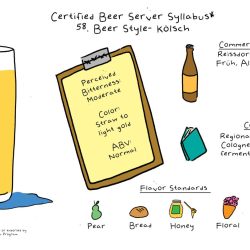 Certified Beer Server Syllabus*
58. Beer Style- Kölsch
Perceived
Bitterness:
Moderate
Color:
Straw to
light gold
ABV:
Normal
Commer
Reissdor
Früh, Al
C
Regional
Cologne
ferment
Flavor Standards
Pear
Bread
Honey
Floral
Program